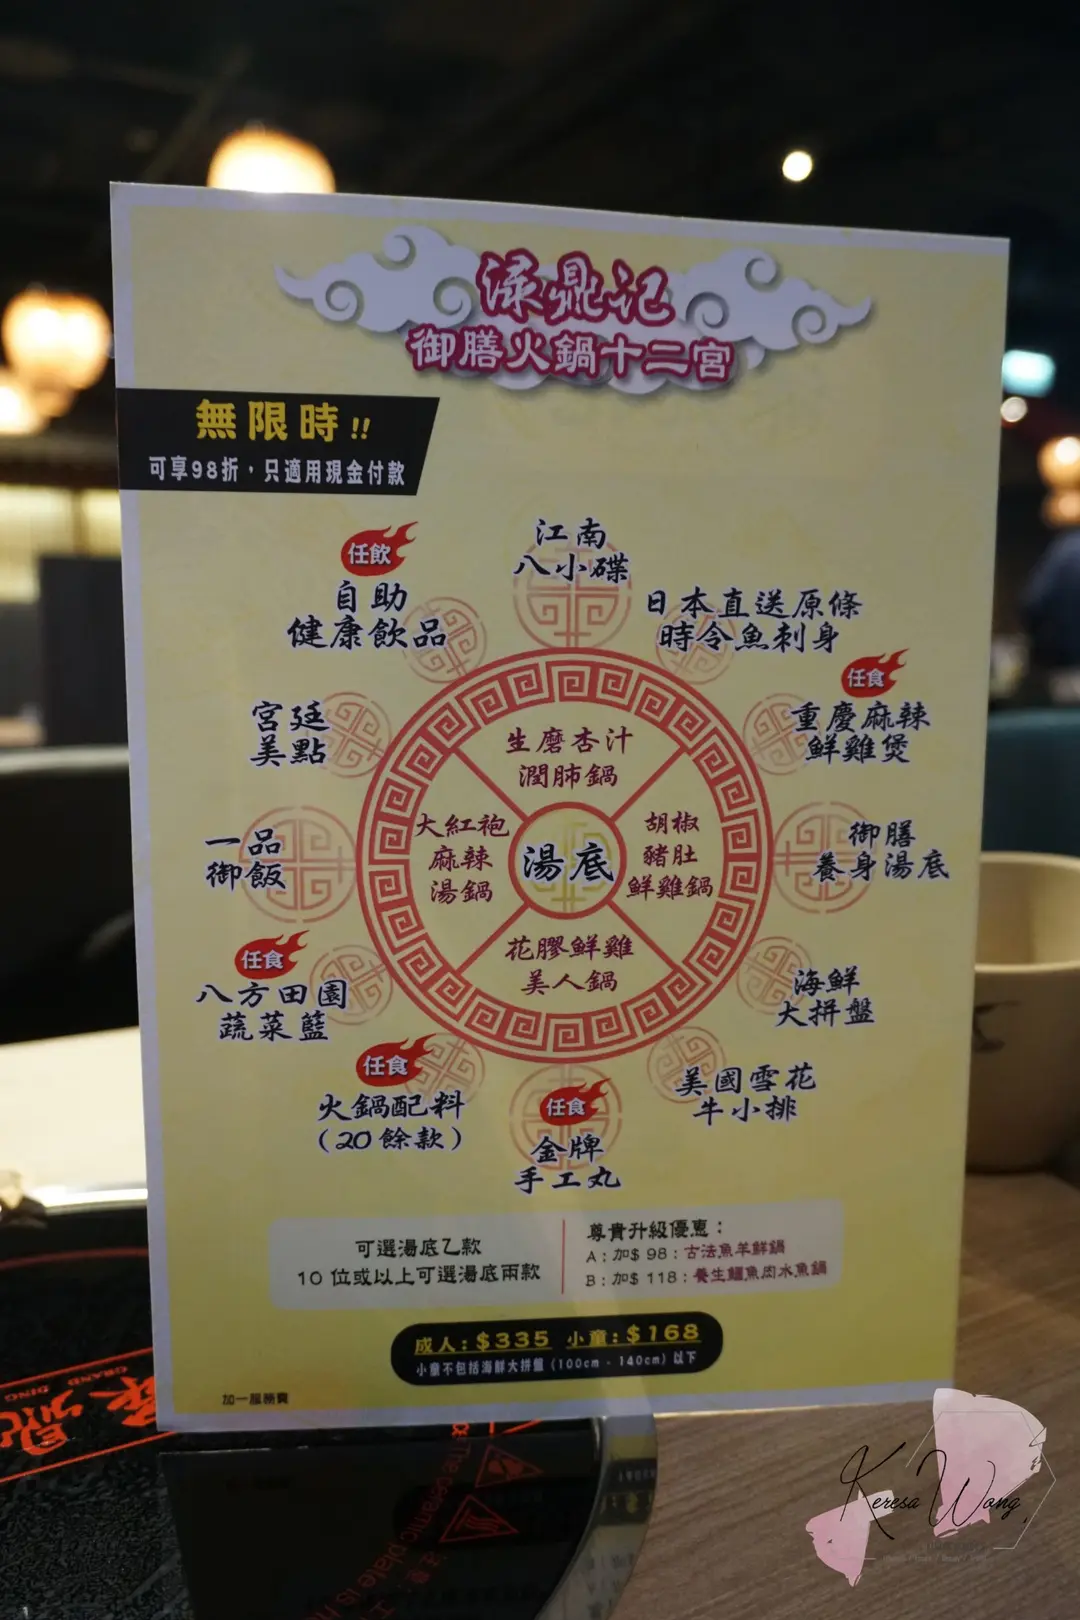 渌鼎记
御膳火鍋十二宮
無限時!!
可享98折，只適用現金付款
江南
八小碟
日本直送原條
時令魚刺身
任食
重慶麻辣
鮮雞煲
御膳
養身湯底
海鮮
大拼盤
美國雪花
牛小排
任食
金牌
手工丸
任食
火鍋配料
(20餘款)
任食
八方田園
蔬菜籃
一品
御飯
宮廷
美點
任飲
自助
健康飲品
湯底
生磨杏汁
潤肺鍋
胡椒
豬肚
鮮雞鍋
花膠鮮雞
美人鍋
大紅袍
麻辣
湯鍋
可選湯底乙款
10 位或以上可選湯底兩款
尊貴升級優惠：
A：加$ 98：古法魚羊鮮鍋
B：加$ 118：養生鱷魚肉水魚鍋
成人：$335 小童：$168
小童不包括海鮮大拼盤 (100cm - 140cm) 以下
加一服務費
GRAND DING
The ceramic plate is
注意
Keresa Wong